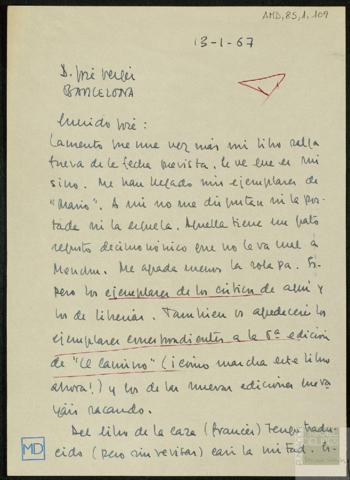 AMD, 85, 1, 109
13-1-67
D. José Vergés
BARCELONA
Querido José:
Lamento que una vez más mi libro salga
fuera de la fecha prevista. Se ve que es mi
sino. Me han llegado mis ejemplares de
"Mario". A mi no me disgustan ni la por-
tada ni la esquela. Aquella tiene un
regusto decimonónico que no le va mal a
Menchu. Me agrada menos la solapa. Es-
pero los ejemplares de los críticos de aquí y
los de librerías. También os agradeceré los
ejemplares correspondientes a la 6ª edición
de "El Camino" (¡cómo marcha este libro
ahora!) y los de las nuevas ediciones que va-
yáis sacando.
Del libro de la caza (francés) tengo tradu-
cido (pero sin revisar) casi la mitad. Es-
MD